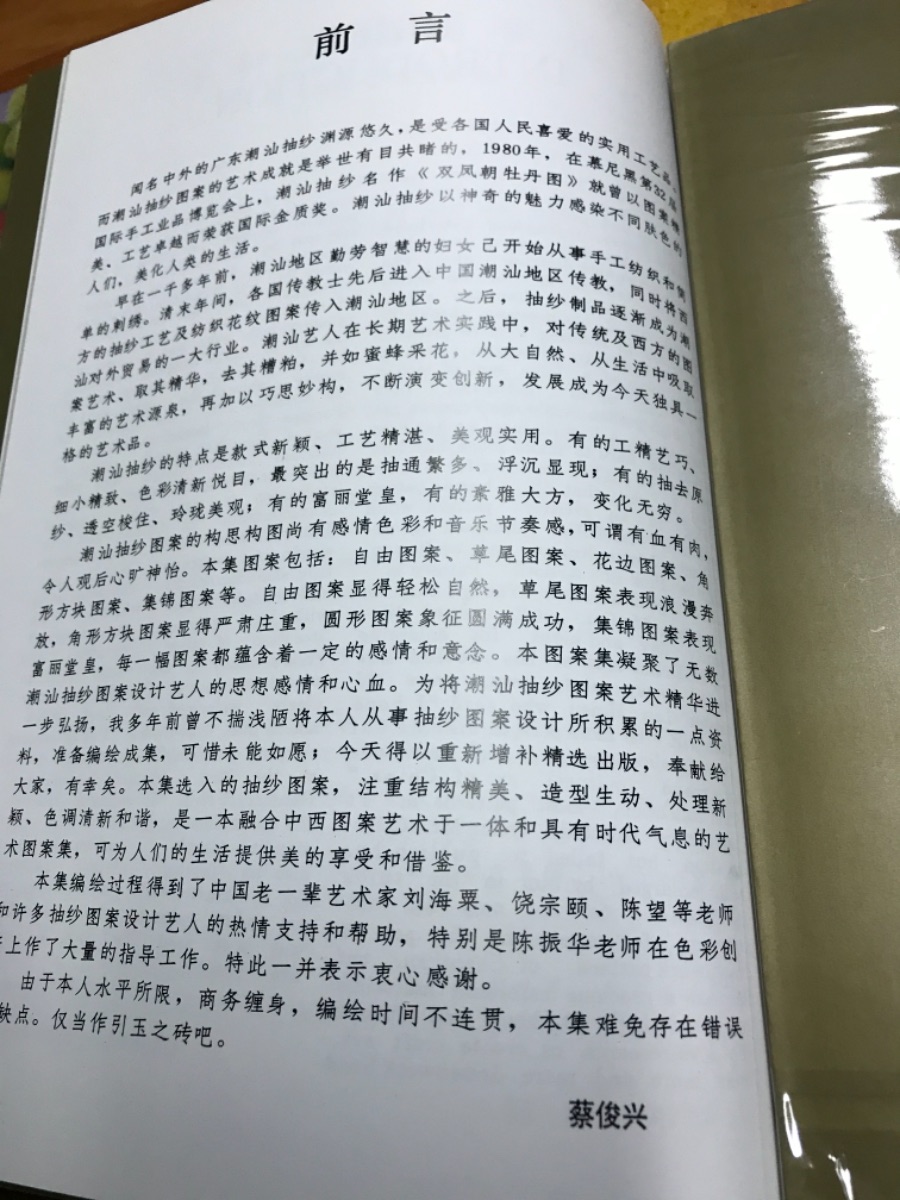 前 言
闻名中外的广东潮汕抽纱渊源悠久，是受各国人民喜爱的实用工艺品。
而潮汕抽纱图案的艺术成就是举世有目共睹的，1980年，在慕尼黑第32届
国际手工业品博览会上，潮汕抽纱名作《双凤朝牡丹图》就曾以图案精
美、工艺卓越而荣获国际金质奖。潮汕抽纱以神奇的魅力感染不同肤色的
人们，美化人类的生活。
早在一千多年前，潮汕地区勤劳智慧的妇女己开始从事手工纺织和简
单的刺绣。清末年间，各国传教士先后进入中国潮汕地区传教，同时将西
方的抽纱工艺及纺织花纹图案传入潮汕地区。之后，抽纱制品逐渐成为潮
汕对外贸易的一大行业。潮汕艺人在长期艺术实践中，对传统及西方的图
案艺术、取其精华，去其糟粕，并如蜜蜂采花，从大自然、从生活中吸取
丰富的艺术源泉，再加以巧思妙构，不断演变创新，发展成为今天独具一
格的艺术品。
潮汕抽纱的特点是款式新颖、工艺精湛、美观实用。有的工精艺巧、
细小精致、色彩清新悦目，最突出的是抽通繁多、浮沉显现；有的抽去原
纱、透空梭住、玲珑美观；有的富丽堂皇，有的素雅大方，变化无穷。
潮汕抽纱图案的构思构图尚有感情色彩和音乐节奏感，可谓有血有肉，
令人观后心旷神怡。本集图案包括：自由图案、草尾图案、花边图案、角
形方块图案、集锦图案等。自由图案显得轻松自然，草尾图案表现浪漫奔
放，角形方块图案显得严肃庄重，圆形图案象征圆满成功，集锦图案表现
富丽堂皇，每一幅图案都蕴含着一定的感情和意念。本图案集凝聚了无数
潮汕抽纱图案设计艺人的思想感情和心血。为将潮汕抽纱图案艺术精华进
一步弘扬，我多年前曾不揣浅陋将本人从事抽纱图案设计所积累的一点资
料，准备编绘成集，可惜未能如愿；今天得以重新增补精选出版，奉献给
大家，有幸矣。本集选入的抽纱图案，注重结构精美、造型生动、处理新
颖、色调清新和谐，是一本融合中西图案艺术于一体和具有时代气息的艺
术图案集，可为人们的生活提供美的享受和借鉴。
本集编绘过程得到了中国老一辈艺术家刘海粟、饶宗颐、陈望等老师
和许多抽纱图案设计艺人的热情支持和帮助，特别是陈振华老师在色彩创
上作了大量的指导工作。特此一并表示衷心感谢。
由于本人水平所限，商务缠身，编绘时间不连贯，本集难免存在错误
缺点。仅当作引玉之砖吧。
蔡俊兴